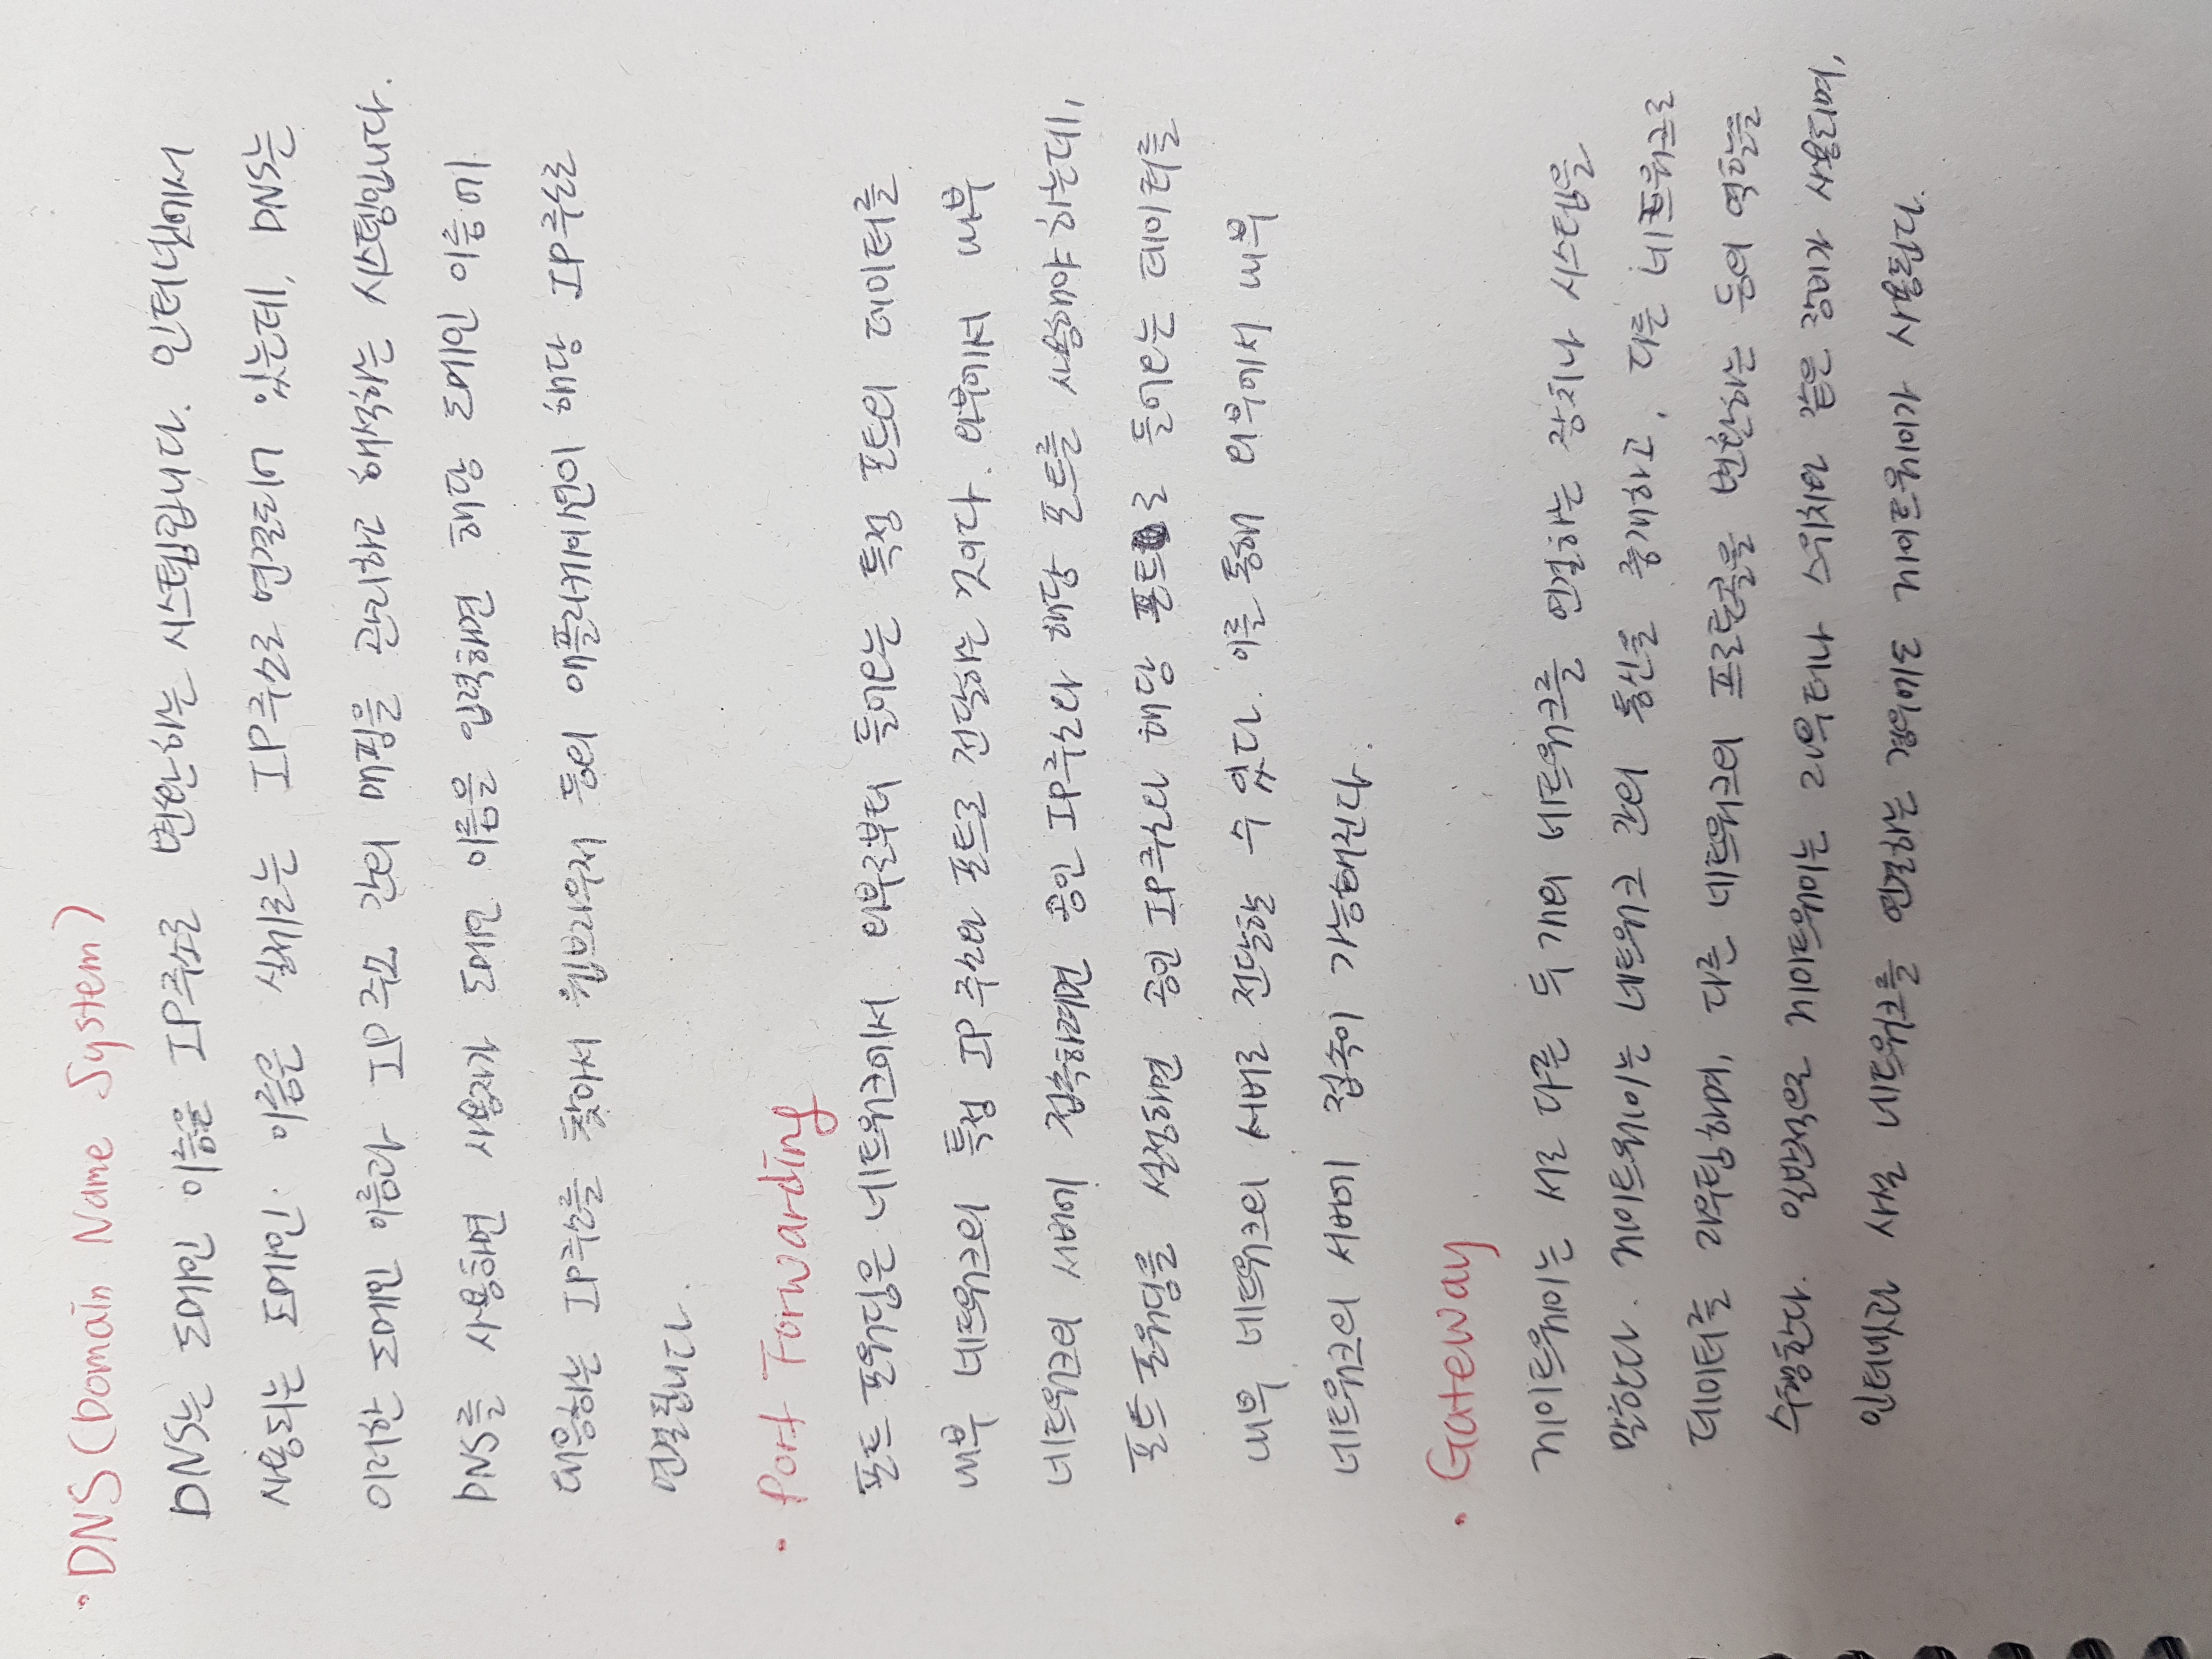 • DNS (Domain Name System)
DNS는 도메인 이름을 IP주소로 변환하는 시스템입니다. 인터넷에서
사용되는 도메인 이름은 실제로는 IP주소로 연결되어 있는데, DNS는
이러한 도메인 이름과 IP주소 간의 매핑을 관리하고 해석하는 시스템입니다.
DNS를 사용하면 사용자가 도메인 이름을 입력하면 해당 도메인 이름에
대응하는 IP주소를 찾아서 웹브라우저 등의 애플리케이션이 해당 IP주소로
연결됩니다.
• Port Forwarding
포트 포워딩은 네트워크에서 외부로부터 들어오는 특정 포트의 데이터를
내부 네트워크의 특정 IP 주소와 포트로 전달하는 것이다. 외부에서 내부
네트워크의 서버에 접속하려면 공인 IP주소와 해당 포트를 사용해야 하는데,
포트 포워딩을 설정하면 공인 IP주소와 해당 포트로 들어오는 데이터를
내부 네트워크의 서버로 전달할 수 있다. 이를 통해 외부에서 내부
네트워크의 서버에 접속이 가능해진다.
• Gateway
게이트웨이는 서로 다른 두 개의 네트워크를 연결하는 장치나 시스템을
말한다. 게이트웨이는 네트워크 간의 통신을 중개하고, 다른 네트워크로
데이터를 라우팅하며, 다른 네트워크의 프로토콜을 변환하는 등의 역할을
수행한다. 일반적으로 게이트웨이는 라우터나 스위치와 같은 장비가 사용되며,
인터넷과 사설 네트워크를 연결하는 경우에도 게이트웨이가 사용된다.